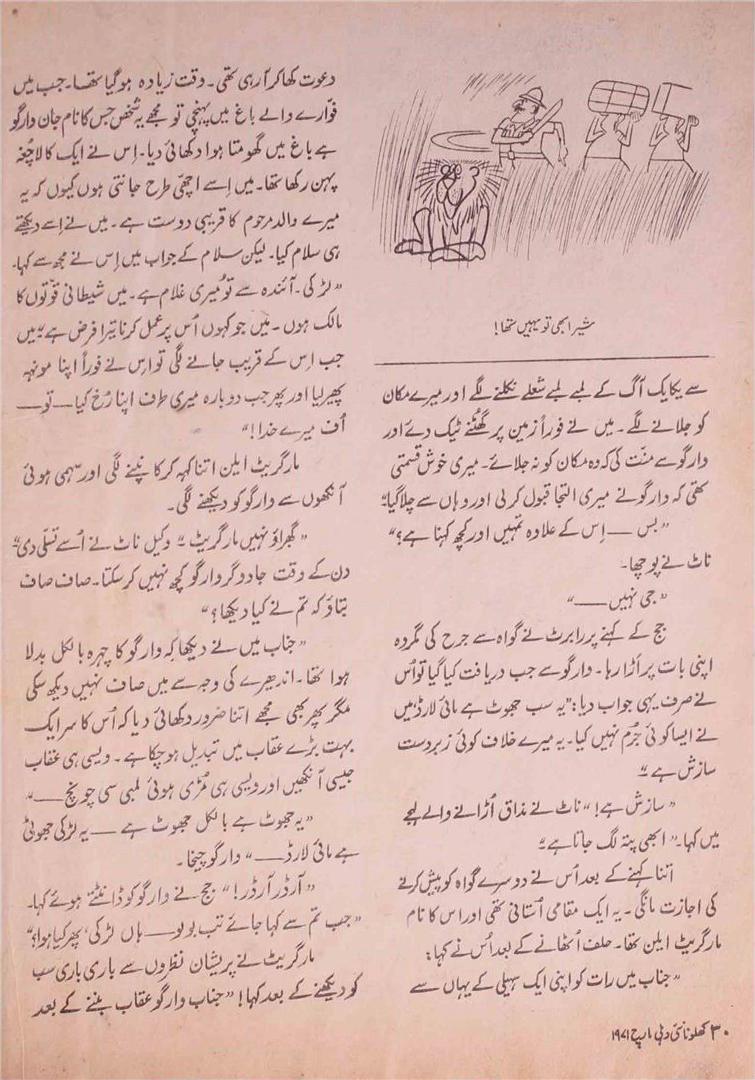 شیر ابھی تو یہیں تھا!
سے یکایک آگ کے لمبے لمبے شعلے نکلنے لگے اور میرے مکان
کو جلانے لگے۔ میں نے فوراً زمین پر گھٹنے ٹیک دیئے اور
وارگو سے منّت کی کہ وہ مکان کو نہ جلائے۔ میری خوش قسمتی
تھی کہ وارگو نے میری التجا قبول کر لی اور وہاں سے چلا گیا"
"بس — اِس کے علاوہ تمہیں اور کچھ کہنا ہے؟"
ناٹ نے پوچھا۔
"جی نہیں —"
جج کے کہنے پر رابرٹ نے گواہ سے جرح کی مگر وہ
اپنی بات پر اڑا رہا۔ وارگو سے جب دریافت کیا گیا تو اُس
نے صرف یہی جواب دیا: "یہ سب جھوٹ ہے مائی لارڈ، میں
نے ایسا کوئی جُرم نہیں کیا۔ یہ میرے خلاف کوئی زبردست
سازش ہے"
"سازش ہے!" ناٹ نے مذاق اُڑانے والے لہجے
میں کہا۔ "ابھی پتہ لگ جاتا ہے"
اتنا کہنے کے بعد اُس نے دوسرے گواہ کو پیش کرنے
کی اجازت مانگی۔ یہ ایک مقامی اُستانی تھی اور اس کا نام
مارگریٹ ایلن تھا۔ حلف اُٹھانے کے بعد اُس نے کہا:
"جناب میں رات کو اپنی ایک سہیلی کے یہاں سے
دعوت کھا کر آ رہی تھی۔ وقت زیادہ ہو گیا تھا۔ جب میں
فوّارے والے باغ میں پہنچی تو مجھے یہ شخص جس کا نام جان وارگو
ہے باغ میں گھومتا ہوا دکھائی دیا۔ اِس نے ایک کالا چُغہ
پہن رکھا تھا۔ میں اِسے اچھّی طرح جانتی ہوں کیوں کہ یہ
میرے والد مرحوم کا قریبی دوست ہے۔ میں نے اِسے دیکھتے
ہی سلام کیا۔ لیکن سلام کے جواب میں اِس نے مجھ سے کہا۔
"لڑکی۔ آئندہ سے تو میری غلام ہے۔ میں شیطانی قوّتوں کا
مالک ہوں۔ میں جو کہوں اُس پر عمل کرنا تیرا فرض ہے" میں
جب اِس کے قریب جانے لگی تو اِس نے فوراً اپنا مونہہ
پھیر لیا اور پھر جب دوبارہ میری طرف اپنا رُخ کیا — تو —
اُف میرے خدا!!"
مارگریٹ ایلن اتنا کہہ کر کانپنے لگی اور سہمی ہوئی
آنکھوں سے وارگو کو دیکھنے لگی۔
"گھبراؤ نہیں مارگریٹ" وکیل ناٹ نے اُسے تسلّی دی"
دن کے وقت جادوگر وارگو کچھ نہیں کر سکتا۔ صاف صاف
بتاؤ کہ تم نے کیا دیکھا؟"
"جناب میں نے دیکھا کہ وارگو کا چہرہ بالکل بدلا
ہوا تھا۔ اندھیرے کی وجہ سے میں صاف نہیں دیکھ سکی
مگر پھر بھی مجھے اتنا ضرور دکھائی دیا کہ اُس کا سر ایک
بہت بڑے عقاب میں تبدیل ہو چکا ہے۔ ویسی ہی عقاب
جیسی آنکھیں اور ویسی ہی مُڑی ہوئی لمبی سی چونچ —"
"یہ جھوٹ ہے بالکل جھوٹ ہے — یہ لڑکی جھوٹی
ہے مائی لارڈ —" وارگو چیخا۔
"آرڈر آرڈر!" جج نے وارگو کو ڈانٹتے ہوئے کہا۔
"جب تم سے کہا جائے تب بولو — ہاں لڑکی، پھر کیا ہوا؟"
مارگریٹ نے پریشان نظروں سے باری باری سب
کو دیکھنے کے بعد کہا! "جناب وارگو عقاب بننے کے بعد
۳۰ کھلونا نئی دہلی مارچ ۱۹۷۱